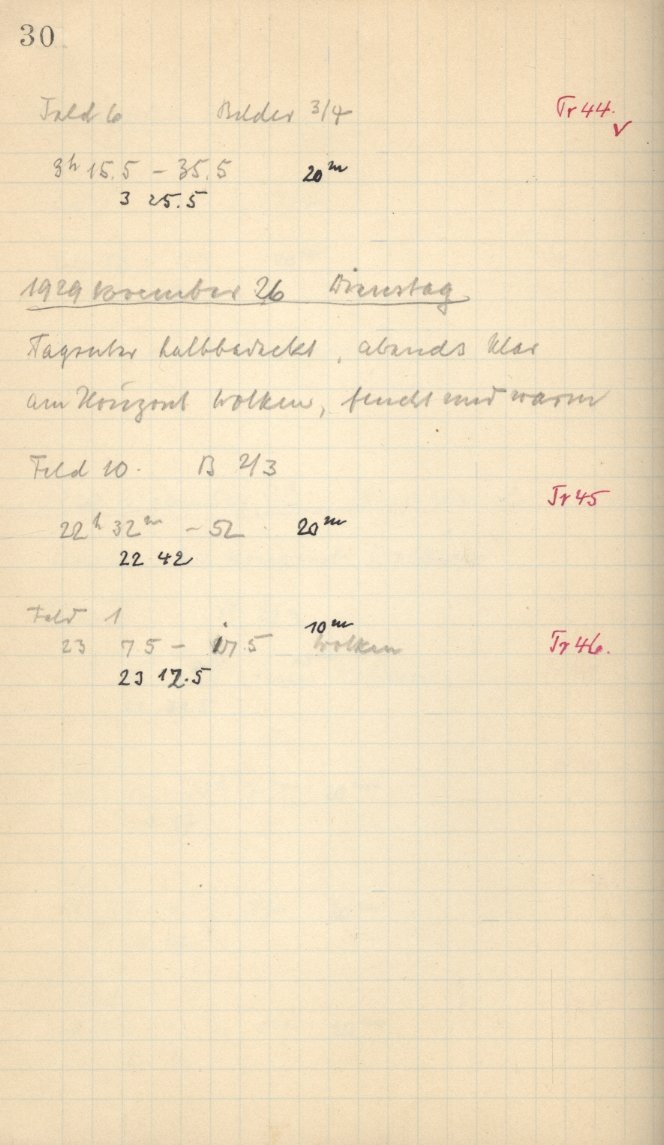 30
Feld 6 Bilder 3/4 Tr 44. ✓
3h 15.5 – 35.5 20m
3 25.5
1929 November 26 Dienstag
Tagsüber halbbedeckt, abends klar
am Horizont Wolken, feucht und warm
Feld 10. B 2/3
Tr 45
22h 32m – 52 20m
22 42
Feld 1
23 7 5 – 17 5 10m Wolken Tr 46.
23 12.5